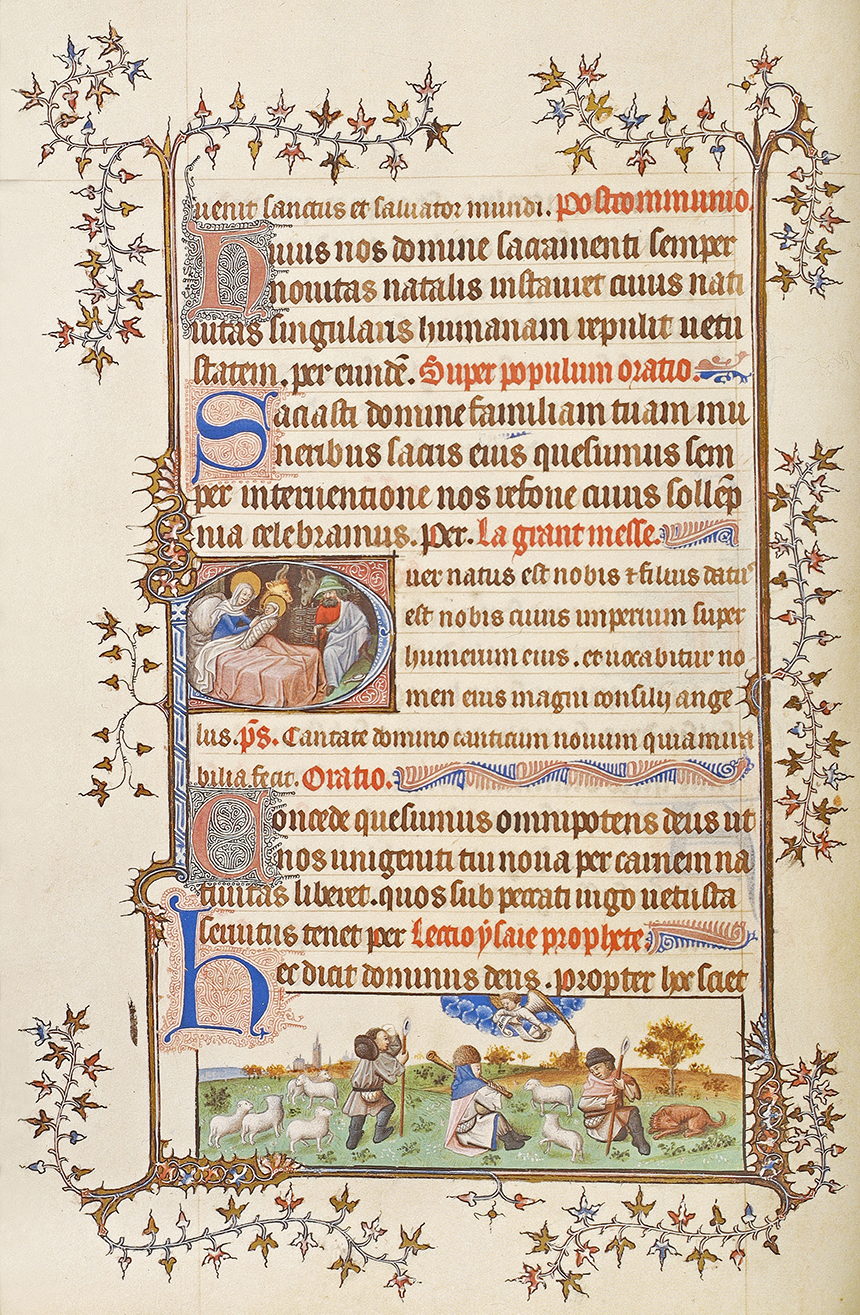 uenit sanctus et saluator mundi. Postcommunio.
Huius nos domine sacramenti semper
nouitas natalis instauret cuius nati
uitas singularis humanam repulit uetu
statem. per eundē. Super populum oratio.
Saciasti domine familiam tuam mu
neribus sacris eius quesumus sem
per interuentione nos refoue cuius sollēp
nia celebramus. Per. La grant messe.
uer natus est nobis ⁊ filius datus
est nobis cuius imperium super
humerum eius. et uocabitur no
men eius magni consilij ange
lus. p̄s. Cantate domino canticum nouum quia mira
bilia fecit. Oratio.
Concede quesumus omnipotens deus ut
nos unigeniti tui noua per carnem na
tiuitas liberet. quos sub peccati iugo uetusta
seruitus tenet per Lectio ysaie prophete.
Hec dicit dominus deus. Propter hoc sciet